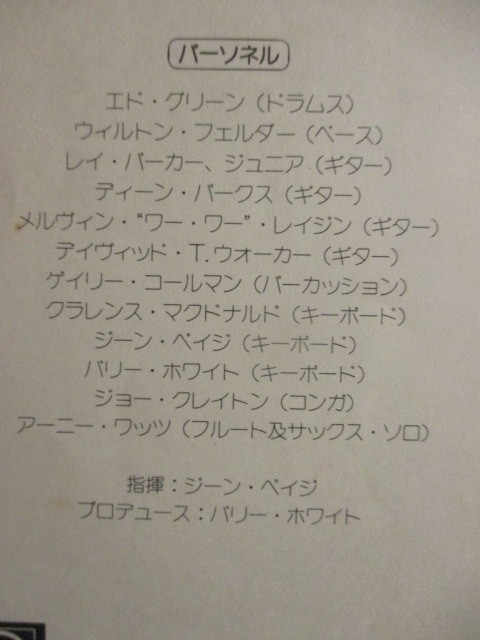 パーソネル
エド・グリーン（ドラムス）
ウィルトン・フェルダー（ベース）
レイ・パーカー、ジュニア（ギター）
ディーン・パークス（ギター）
メルヴィン・“ワー・ワー”・レイジン（ギター）
デイヴィッド・T.ウォーカー（ギター）
ゲイリー・コールマン（パーカッション）
クラレンス・マクドナルド（キーボード）
ジーン・ペイジ（キーボード）
バリー・ホワイト（キーボード）
ジョー・クレイトン（コンガ）
アーニー・ワッツ（フルート及サックス・ソロ）
指揮：ジーン・ペイジ
プロデュース：バリー・ホワイト